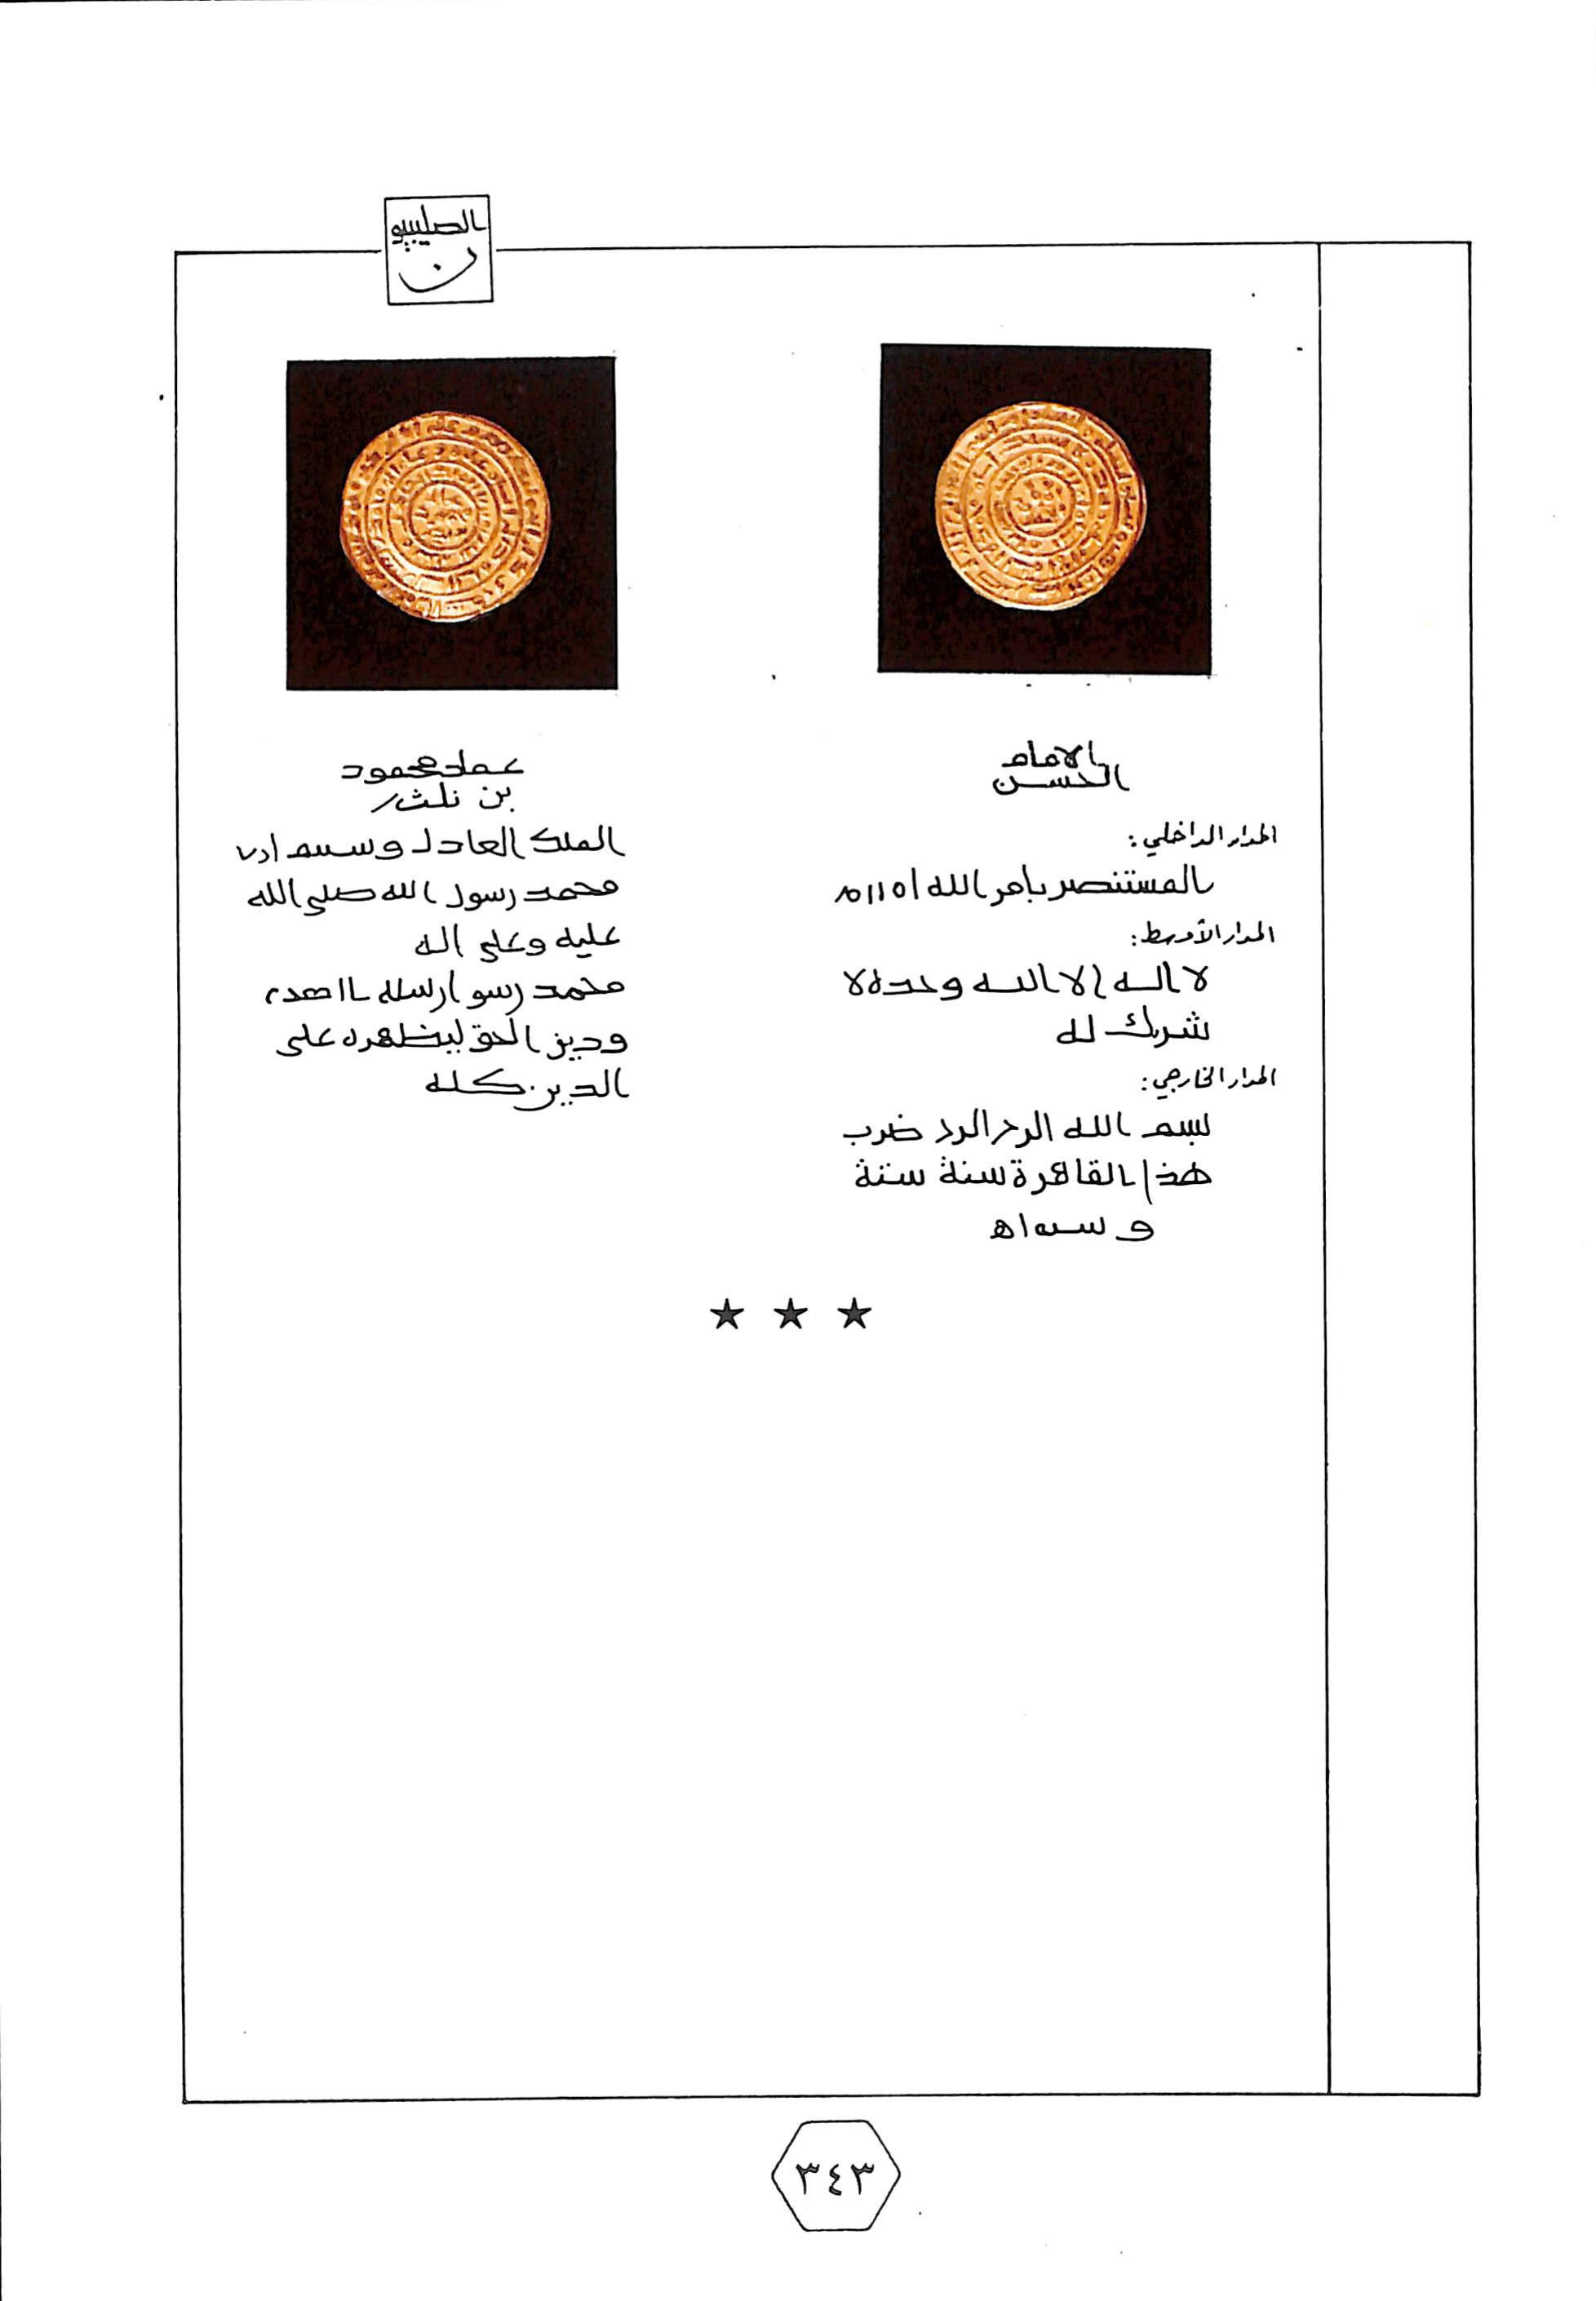 الصليبيو
ن
الامام
الحسن
المدار الداخلي:
المستنصر بامر الله
المدار الأوسط:
لا اله الا الله وحده لا
شريك له
المدار الخارجي:
بسم الله الرحر الرد ضرب
هذا القاهرة سنة ستة
و
عماد محمود
بن
الملك العادل و
محمد رسول الله صلى الله
عليه وعلى اله
محمد رسو ارسله
ودين الحق ليظهره على
الدين كله
٣٤٣